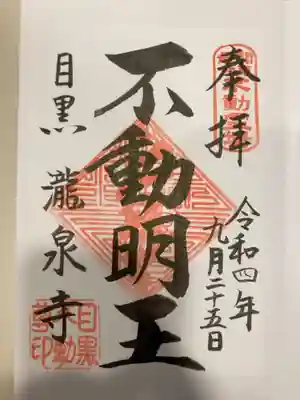 奉拝
令和四年
九月二十五日
不動明王
目黒 瀧泉寺